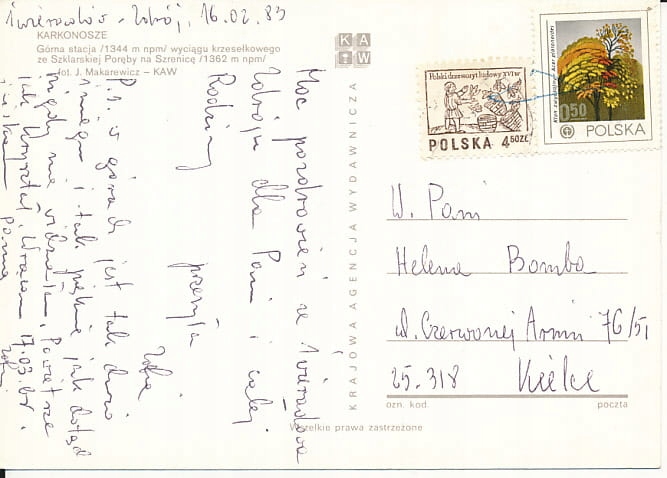 Świeradów-Zdrój, 16.02.83
KARKONOSZE
Górna stacja /1344 m npm/ wyciągu krzesełkowego
ze Szklarskiej Poręby na Szrenicę /1362 m npm/
fot. J. Makarewicz – KAW
KAW
KRAJOWA AGENCJA WYDAWNICZA
Moc pozdrowień ze Świeradowa
Zdroju dla Pani i całej
Rodziny
przesyła
Zofia
P.s. w górach jest tak dużo
śniegu i tak pięknie jak dotąd
nigdy nie widziałam. Powietrze
jak kryształ. Wracam 17.03.br.
Polski drzeworyt ludowy XVI w
POLSKA 4.50ZŁ
Klon zwyczajny - Acer platanoides
0,50
POLSKA
W. Pani
Helena Bomba
ul. Czerwonej Armii 76/51
25-318 Kielce
ozn. kod.
poczta
Wszelkie prawa zastrzeżone